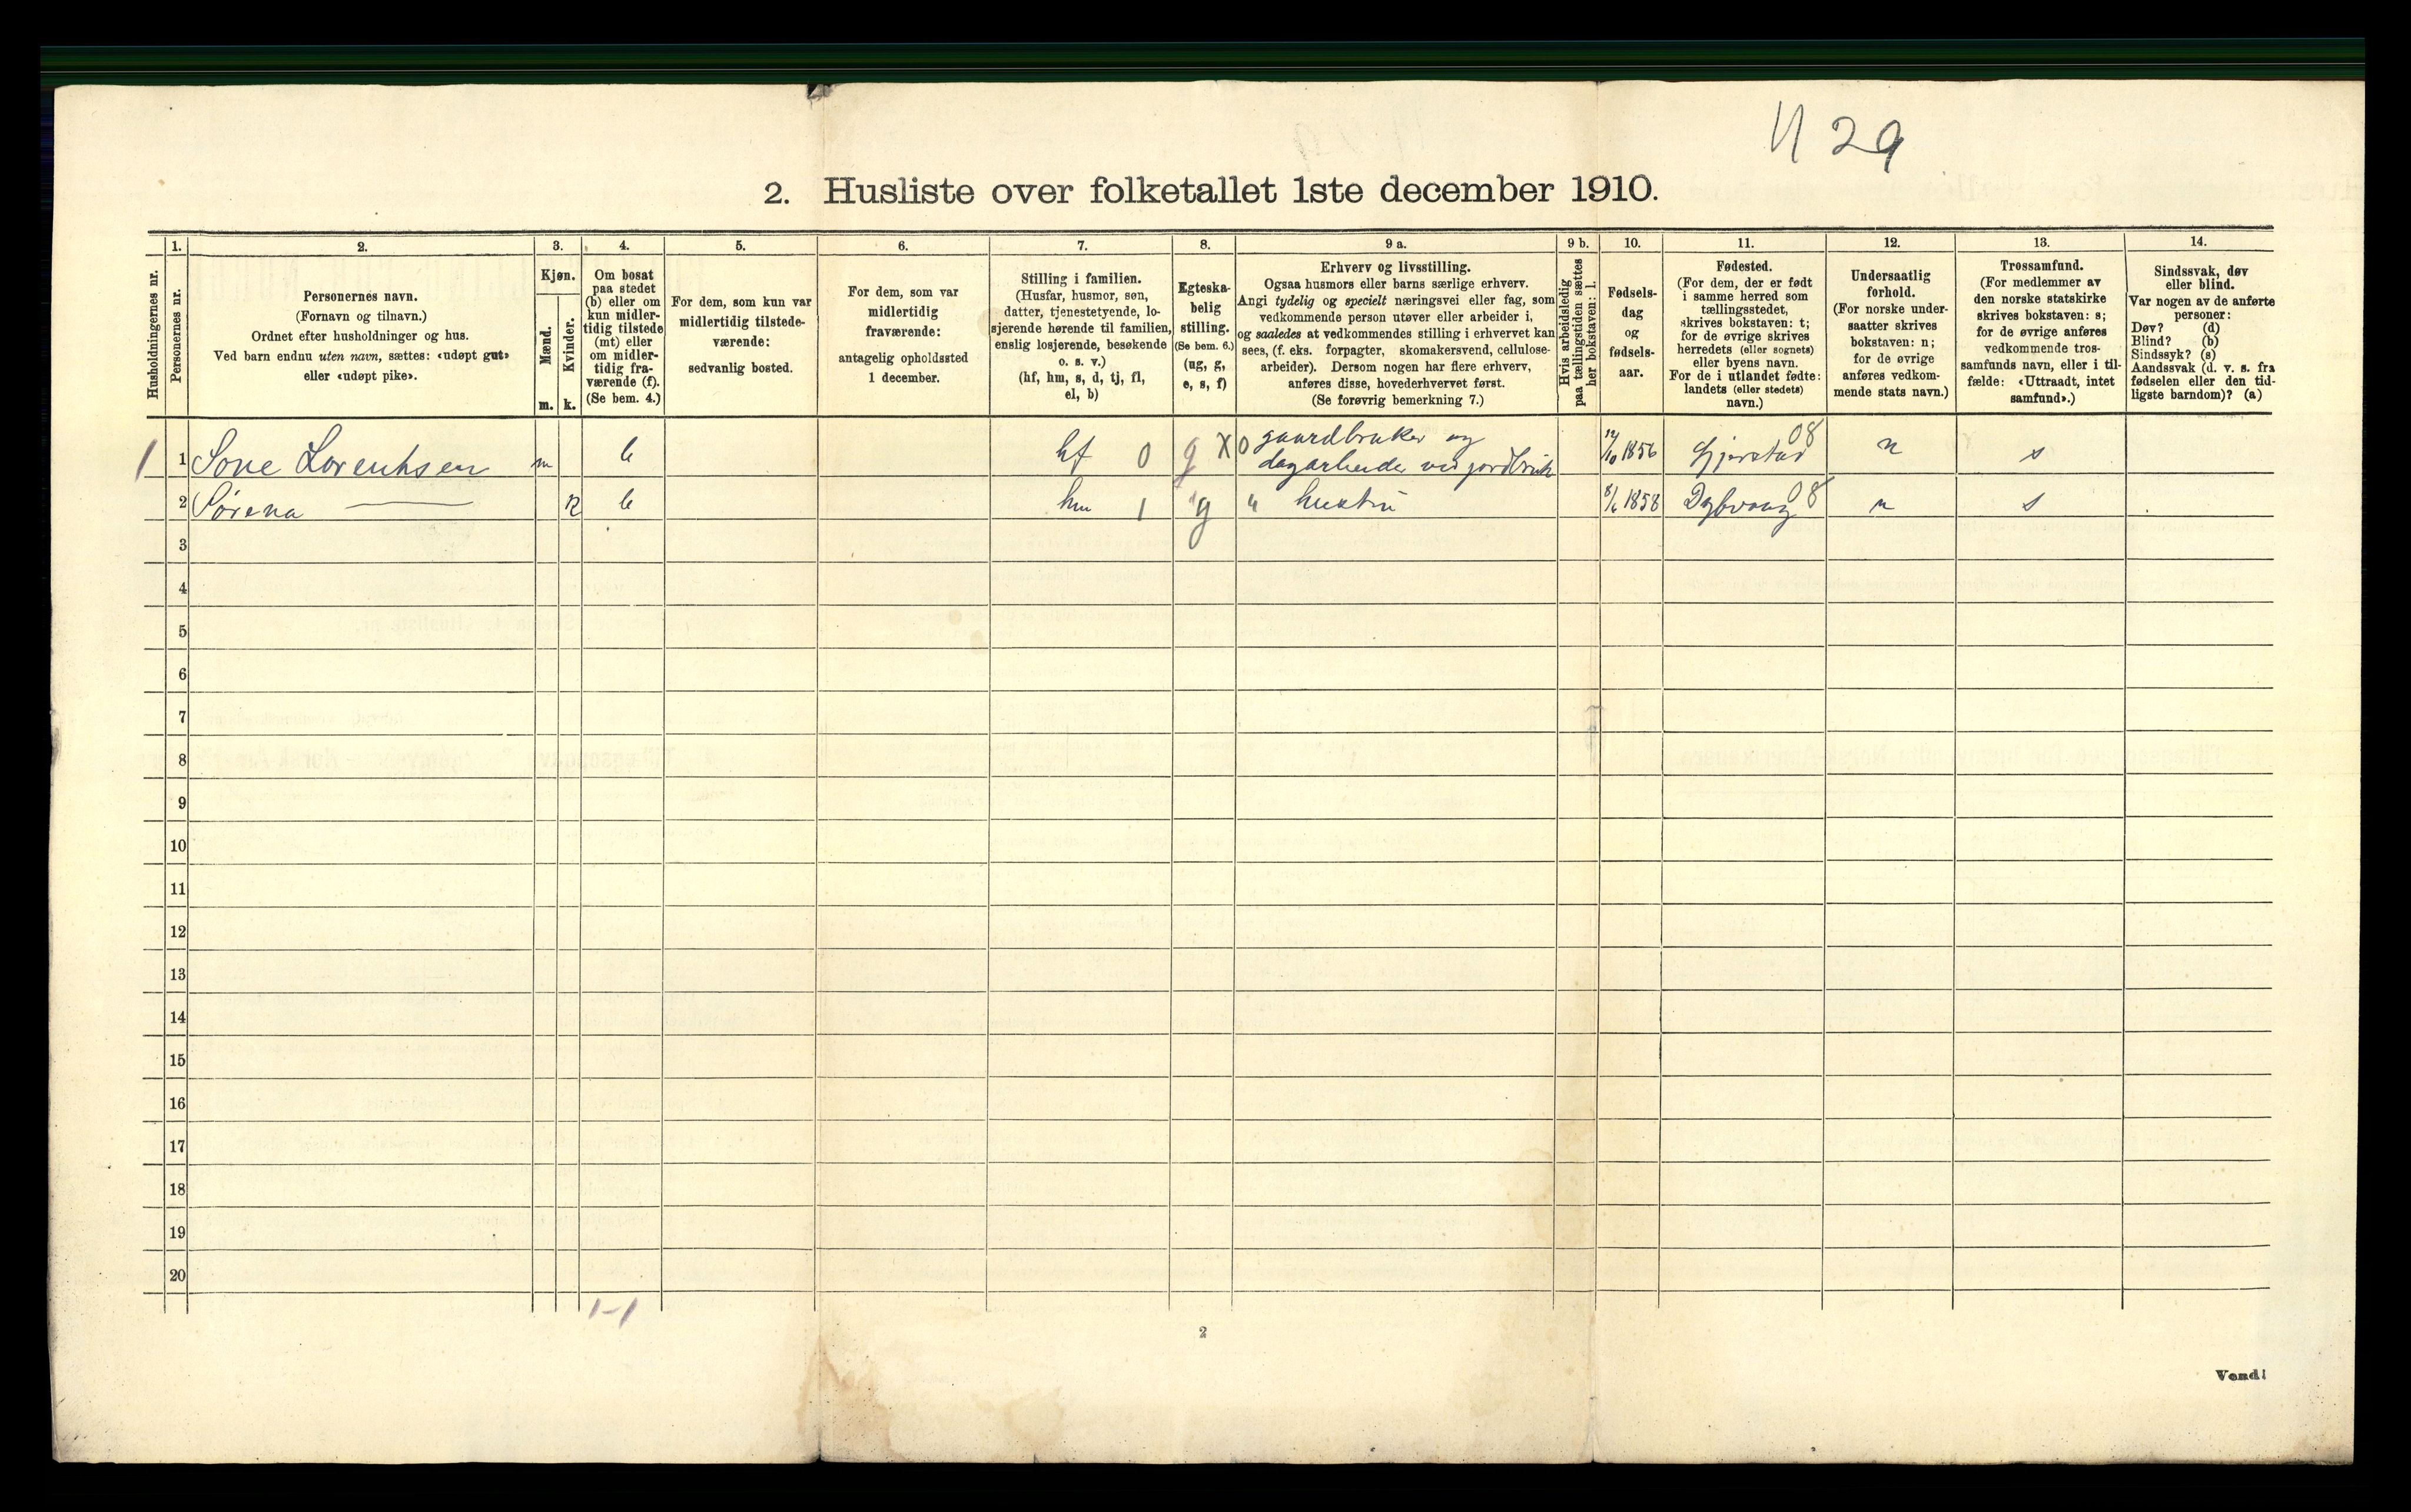 H 29
2. Husliste over folketallet 1ste december 1910.
Husholdningernes nr.
1.
Personernes nr.
2.
Personernes navn.
(Fornavn og tilnavn.)
Ordnet efter husholdninger og hus.
Ved barn endnu uten navn, sættes: «udøpt gut»
eller «udøpt pike».
3.
Kjøn.
Mænd.
m.
Kvinder.
k.
4.
Om bosat
paa stedet
(b) eller om
kun midler-
tidig tilstede
(mt) eller
om midler-
tidig fra-
værende (f).
(Se bem. 4.)
5.
For dem, som kun var
midlertidig tilstede-
værende:
sedvanlig bosted.
6.
For dem, som var
midlertidig
fraværende:
antagelig opholdssted
1 december.
7.
Stilling i familien.
(Husfar, husmor, søn,
datter, tjenestetyende, lo-
sjerende hørende til familien,
enslig losjerende, besøkende
o. s. v.)
(hf, hm, s, d, tj, fl,
el, b)
8.
Egteska-
belig
stilling.
(Se bem. 6.)
(ug, g,
e, s, f)
9 a.
Erhverv og livsstilling.
Ogsaa husmors eller barns særlige erhverv.
Angi tydelig og specielt næringsvei eller fag, som
vedkommende person utøver eller arbeider i,
og saaledes at vedkommendes stilling i erhvervet kan
sees, (f. eks. forpagter, skomakersvend, cellulose-
arbeider). Dersom nogen har flere erhverv,
anføres disse, hovederhvervet først.
(Se forøvrig bemerkning 7.)
9 b.
Hvis arbeidsledig
paa tællingstiden sættes
her bokstaven: l.
10.
Fødsels-
dag
og
fødsels-
aar.
11.
Fødested.
(For dem, der er født
i samme herred som
tællingsstedet,
skrives bokstaven: t;
for de øvrige skrives
herredets (eller sognets)
eller byens navn.
For de i utlandet fødte:
landets (eller stedets)
navn.)
12.
Undersaatlig
forhold.
(For norske under-
saatter skrives
bokstaven: n;
for de øvrige
anføres vedkom-
mende stats navn.)
13.
Trossamfund.
(For medlemmer av
den norske statskirke
skrives bokstaven: s;
for de øvrige anføres
vedkommende tros-
samfunds navn, eller i til-
fælde: «Uttraadt, intet
samfund».)
14.
Sindssvak, døv
eller blind.
Var nogen av de anførte
personer:
Døv? (d)
Blind? (b)
Sindssyk? (s)
Aandssvak (d. v. s. fra
fødselen eller den tid-
ligste barndom)? (a)
1 1 Sone Lorentsen m b hf 0 g X 0 gaardbruker og dagarbeider ved jordbruk 12/10 1856 Gjerstad 08 n s
2 Sørena — k b hm 1 g " hustru 8/6 1858 Dybvaag 08 n s
3
4
5
6
7
8
9
10
11
12
13
14
15
16
17
18
19
20
1-1
2
Vend!